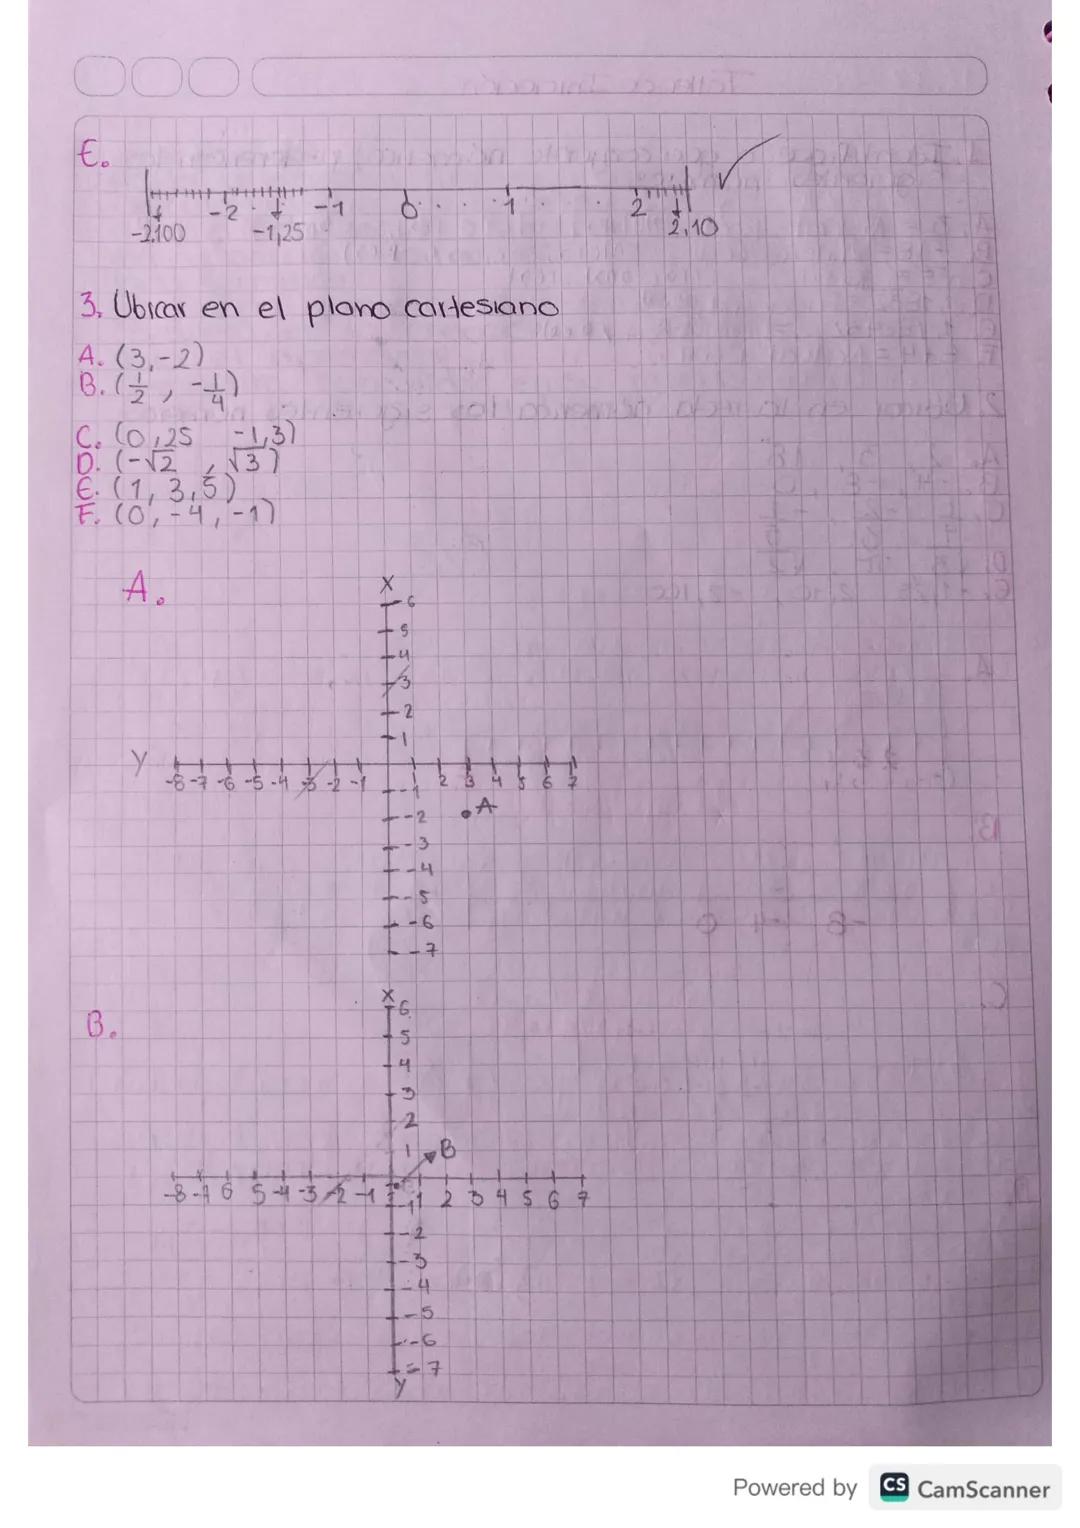 E.
-2 -1 0 1 2
-2,100 -1,25 2,10
3. Ubicar en el plano cartesiano
A. (3,-2)
B. (1/2 , -1/4)
C. (0,25 -1,3)
D. (-√2 , √3)
E. (1, 3,5)
F. (0, -4, -1)
A.
X
6
5
4
3
2
1
Y
-8 -7 -6 -5 -4 -3 -2 -1 2 3 4 5 6 7
-1
-2 A
-3
-4
-5
-6
-7
B.
X
6
5
4
3
2
1 B
-8 -7 6 5 -4 -3 -2 -1 1 2 3 4 5 6 7
-1
-2
-3
-4
-5
-6
-7
Y
Powered by CS CamScanner